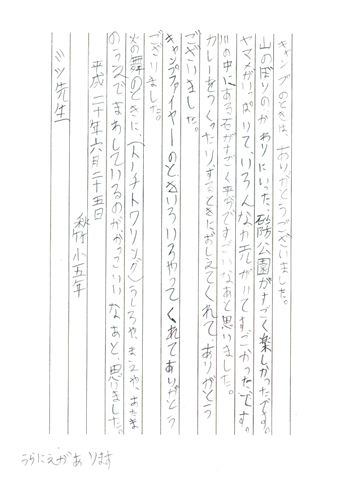 キャンプのときは、ありがとうございました。
山のぼりのかわりにいった、砂防公園がすごく楽しかったです。
ヤマメがいっぱいいて、いろんなわ元がいてすごかったです。
川の中にある石がすごく平らですごいなあと思いました。
カレーをつくったり、するときにおしえてくれて、ありがとう
ございました。
キャンプファイヤーのときいろいろやってくれてありがとう
ございました。
火の舞のときに、(トーチトワリング)うしろや、まえや、あたま
のうえでまわしているのが、かっこいいなあと、思いました。
平成二十年六月二十五日
小五年
ミツ先生
うらにえがあります